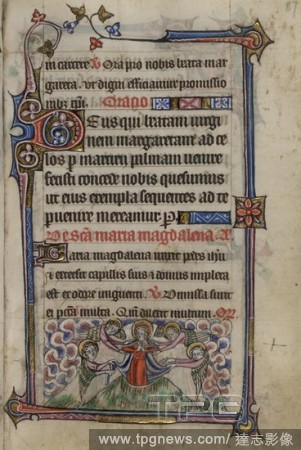 in carcere V Ora pro nobis beata mar
gareta. ut digni efficiamur promissio
nibz xpi. Oratio
Deus qui beatam uirgi
nem margaretam ad ce
los p martirii palmam uenire
fecisti concede nobis quesumus
ut eius exempla sequentes ad te
puenire mereamur P
De scā maria magdalena. A
Maria magdalena unxit pedes ihu
et extersit capillis suis et domus impleta
est ex odore unguenti. V Dimissa sunt
ei pccā multa. Qm dilexit multum. Or.
TPG
www.tpgnews.com/ 達志影像